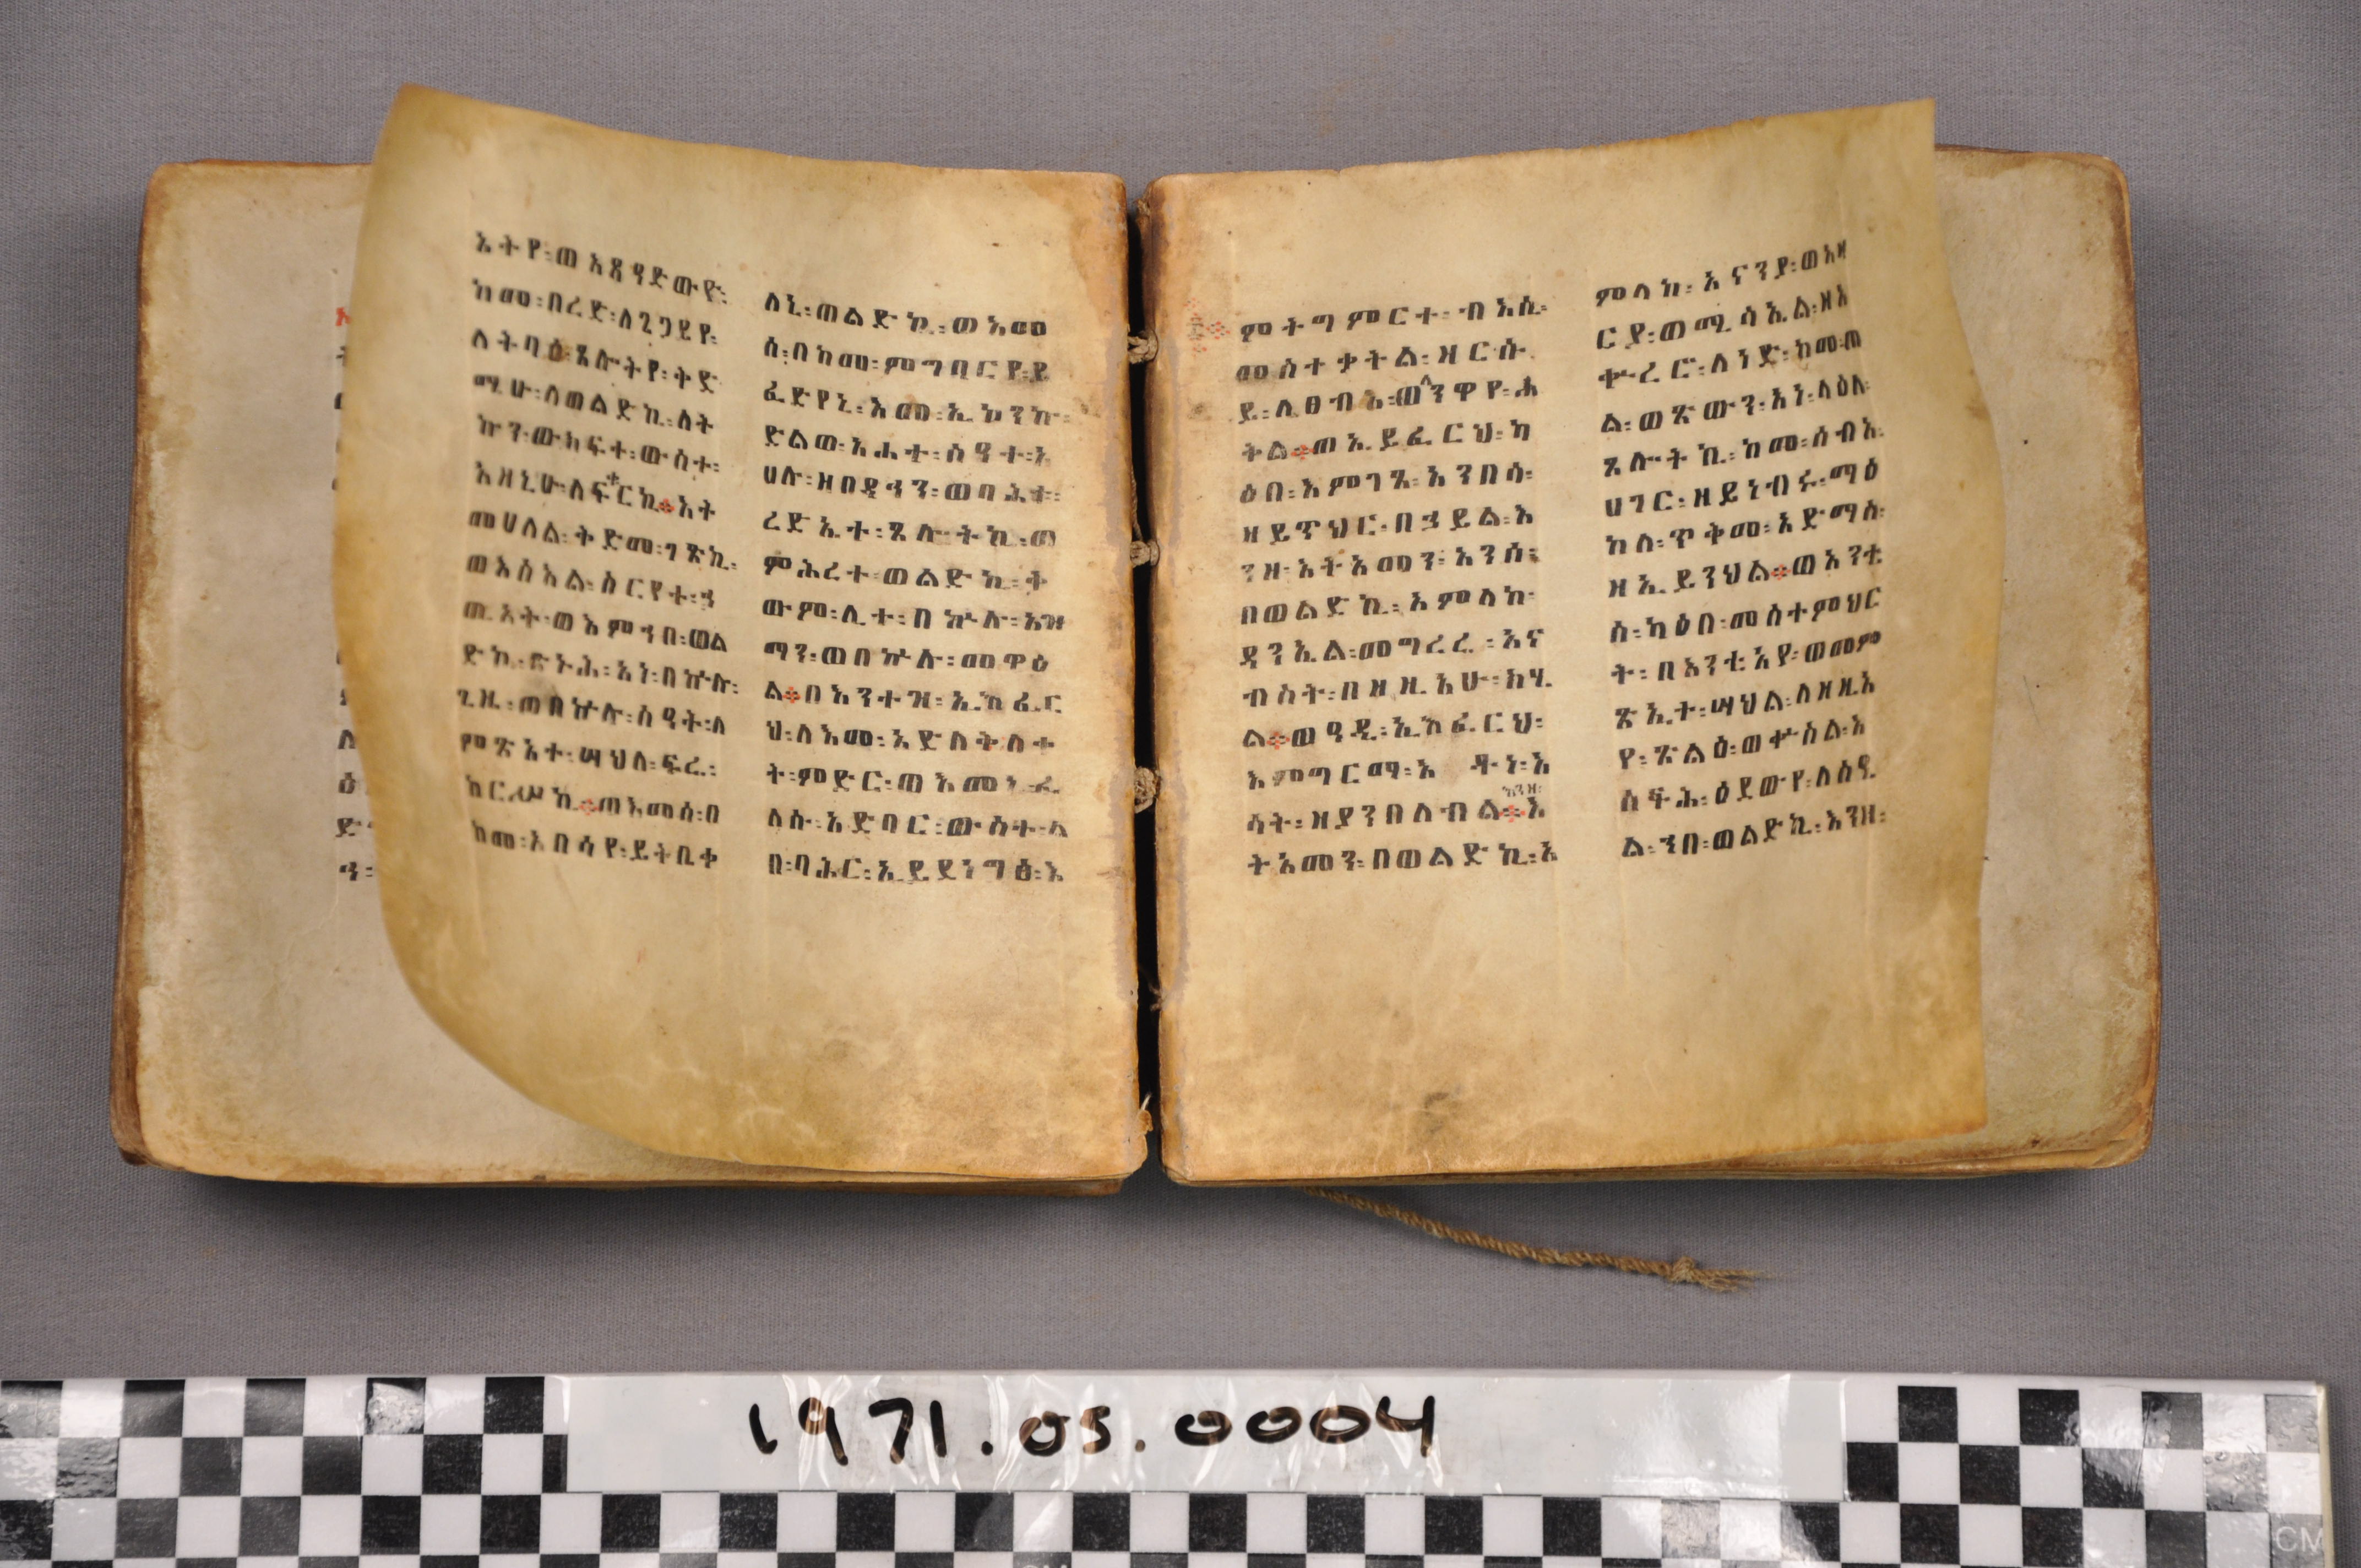 ኦትየ፡ወ
ከመ፡በረድ፡
ለትባዕ፡ጸሎትየ፡ትድ
ኀበ፡ወልድኪ፡
ኵን፡ውክፍተ፡ውስተ፡
እዝኒሁ፡ለፍቁርኪ፡እት
መሀለል፡ቅድመ፡ገጽኪ፡
ወእስእል፡ስርየተ፡ኃ
ጢአት፡ወእምኀበ፡ወል
ድኪ፡ድኁሕ፡አነ፡በኵሉ፡
ጊዜ፡ወበኵሉ፡ሰዓት፡ለ
ምጽአተ፡ሣህለ፡ፍሬ፡
ከርሥኪ።ወእመሰ፡በ
ከመ፡አበሳየ፡ይትቤቀ
ለኒ፡ወልድኪ፡ወእመ
ሰ፡በከመ፡ምግባርየ፡ይ
ፈድየኒ፡እመ፡ኢኮንኩ፡
ድልወ፡አሐተ፡ሰዓተ፡
ሀሉ፡ዘበዳኅን፡ወባሕቱ፡
ረድኢተ፡ጸሎትኪ፡ወ
ምሕረተ፡ወልድኪ፡ት
ውም፡ሊተ፡በኵሉ፡እዝ
ማን፡ወበኵሉ፡መዋዕ
ል።በእንተዝ፡ኢክፈር
ህ፡ለእመ፡አድለቅለቀ
ት፡ምድር፡ወእመኒ፡ፈ
ለሱ፡አድባር፡ውስተ፡ል
በ፡ባሕር፡ኢይደነግፅ፡እ
ምትግምርተ፡ብእሲ፡
መስተቃትል፡ዘርሱ
ይ፡ለፀብእ፡ወንዋየ፡ሐ
ቅል።ወኢይፈርህ፡ካ
ዕበ፡እምገጸ፡አንበሳ፡
ዘይጥህር፡በኃይል፡እ
ንዘ፡እትአመን፡አንሰ፡
በወልድኪ፡አምላከ፡
ዳንኤል፡መግረሬ፡አና
ብስት፡በዘዚአሁ፡ከሃ
ል።ወዓዲ፡ኢክፈርህ፡
እምግርማ፡እ ዳተ፡እ
ሳት፡ዘያንበለብል።እ
እንዘ፡
ትአመን፡በወልድኪ፡አ
ምላከ፡አናንያ፡ወአዛ
ርያ፡ወሚሳኤል፡ዘአ
ቍረር፡ለነድ፡ከመ፡ጠ
ል፡ወጽውን፡አነ፡ላዕለ፡
ጸሎትኪ፡ከመ፡ሰብአ፡
ሀገር፡ዘይነብሩ፡ማዕ
ከለ፡ጥቅመ፡አድማስ፡
ዘኢይንህል።ወአንቲ
ሰ፡ካዕበ፡መስተምህር
ት፡በአንቲአየ፡ወመም
ጽኢተ፡ሣህል፡ለዘዚአ
የ፡ጽልዕ፡ወቍስል፡አ
ስፍሕ፡ዕደውየ፡ለስኢ
ል፡ኀበ፡ወልድኪ፡እንዘ፡
1971.05.0004
CM